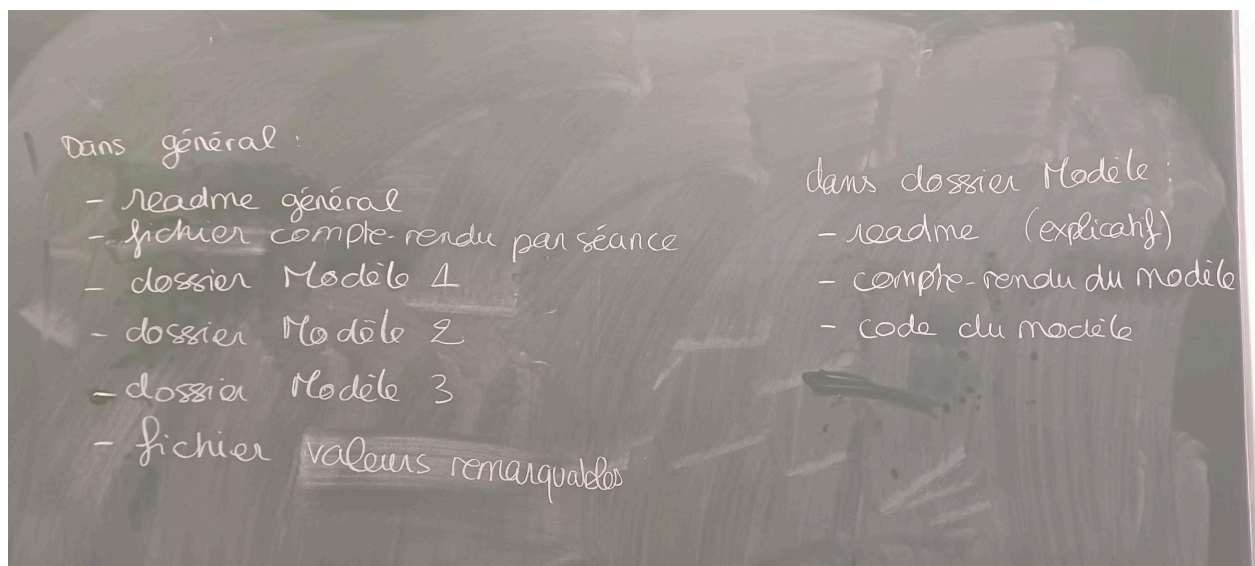 Dans général :
- readme général
- fichier compte-rendu par séance
- dossier Modèle 1
- dossier Modèle 2
- dossier Modèle 3
- fichier valeurs remarquables
dans dossier Modèle :
- readme (explicatif)
- compte-rendu du modèle
- code du modèle